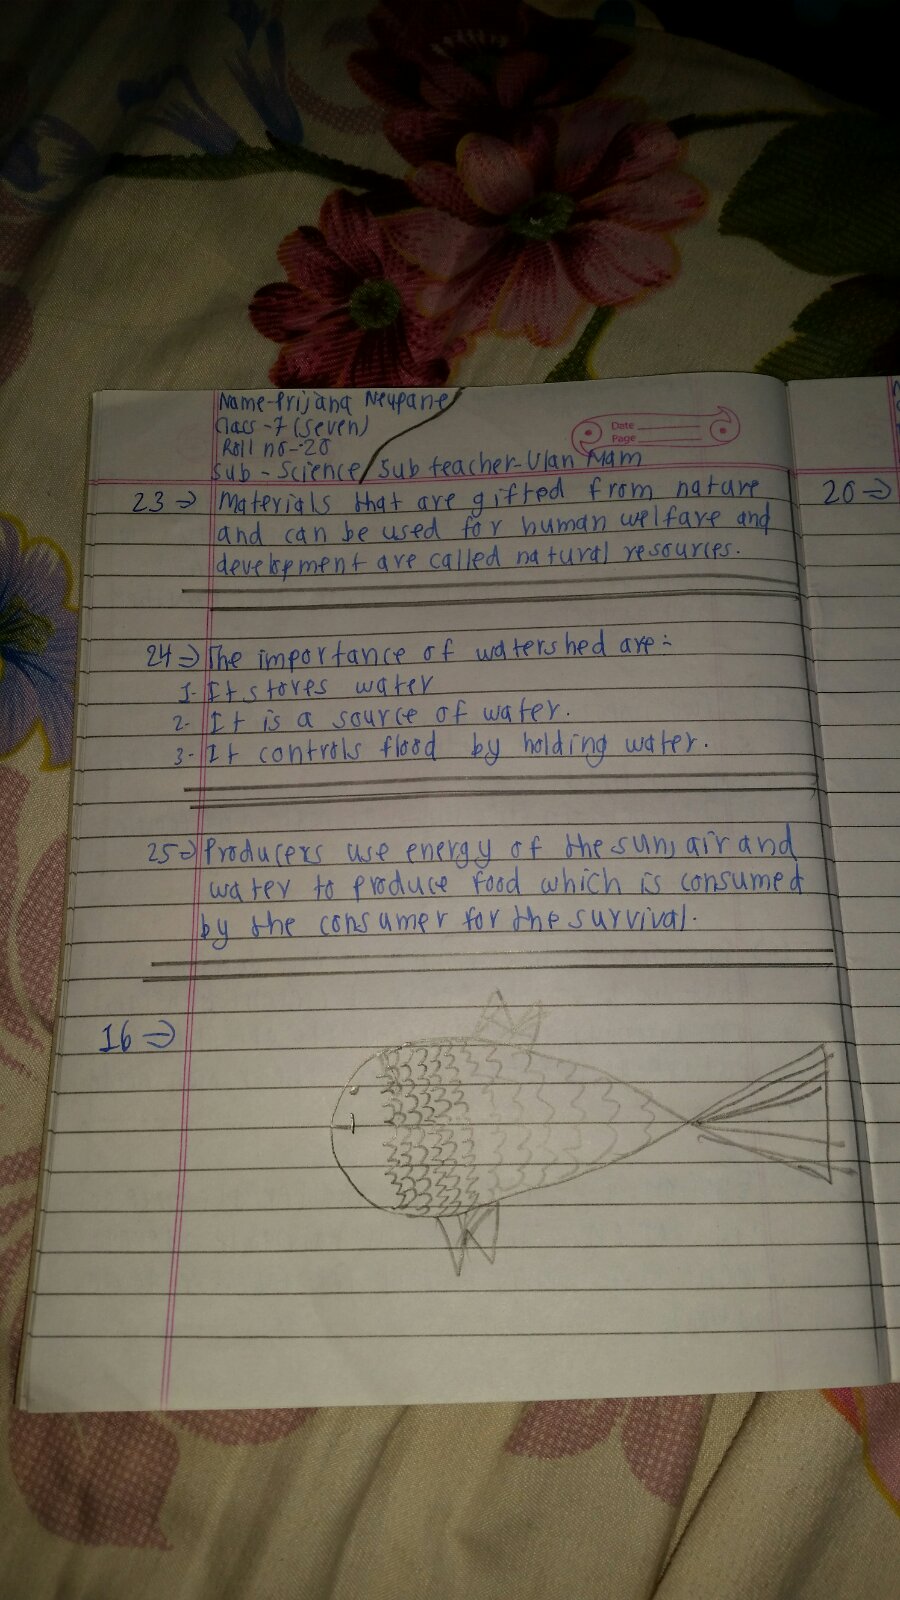 Name-Prijana Neupane
Class-7 (seven)
Roll no-20
Sub-Science/Sub teacher-Ulan Mam
Date
Page
23⇒ Materials that are gifted from nature
and can be used for human welfare and
development are called natural resources.
24⇒ The importance of watershed are:-
1- It stores water
2- It is a source of water.
3- It controls flood by holding water.
25⇒ Producers use energy of the sun, air and
water to produce food which is consumed
by the consumer for the survival.
16⇒
20⇒